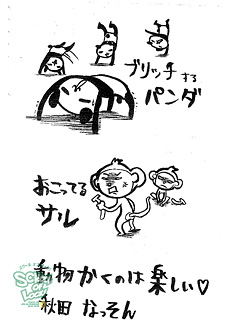 ブリッチする
パンダ
おこってる
サル
動物かくのは楽しい♡
秋田 なっそん